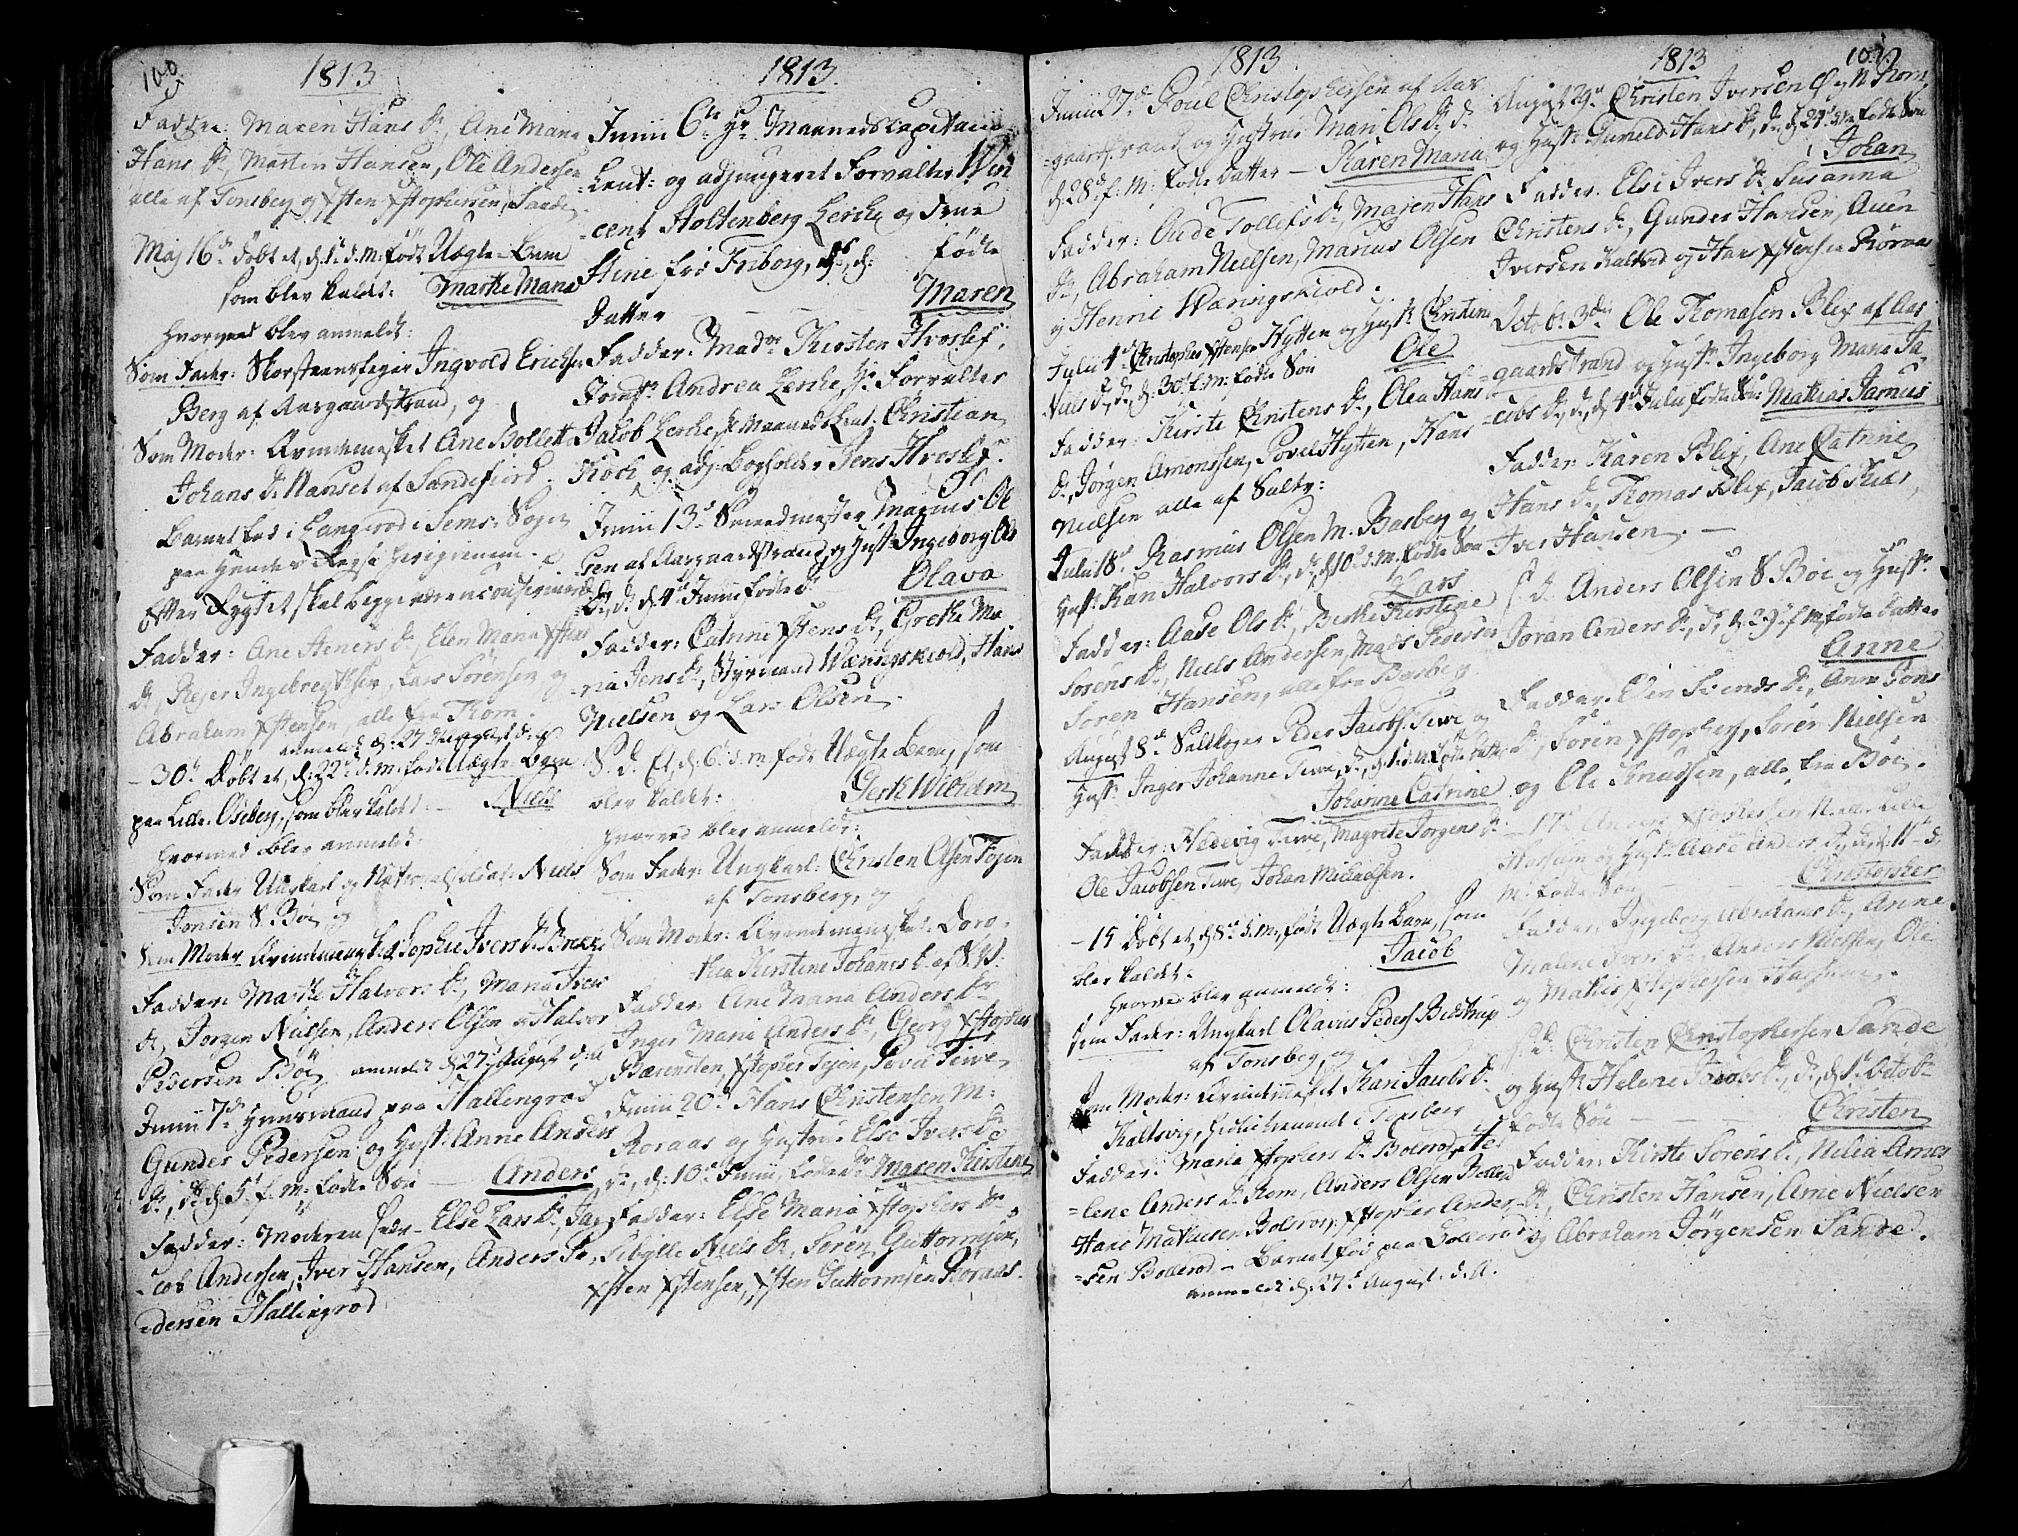 100.
1813
Fadder: Maren Hans Dr, Ane Maria
Hans Dr, Morten Hansen, Ole Andersen
alle af Tonsberg og Xsten Xstophersen, Sande.
Maj 16de Døbt et, d. 1. d. M. født Uægte Barn
som blev kaldet: Marthe Maria
hvorved blev anmeldt:
Som Fader: Skorsteensfejer Ingvold Erichsen
Berg af Aasgaardstrand, og
Som Moder: Qvindemsket Ane Bolette
Johans Dr Nanset af Sandefiord.
Barnet fød i Langerød i Sems Sogn
paa Hendes Rejse herigiennem.
Efter Rygtet skal begge være
Fadder: Ane Steners Dr, Elen Maria Xstens
Dr, Rejer Ingebregtsen, Lars Sørensen, og
Abraham Xstensen, alle fra Rom.
anmeldt d: 27 August d: A
- 30d Døbt et, d: 22d d. M: født Uægte Barn
paa Lille Oseberg, som blev kaldt: Niels
hvormed blev anmeldt
Som Fader Ungkarl og National Soldat: Niels
Jonsen S. Bøe og
Som Moder Qvindemsket Sophie Ivers Dr Brekke
Fadder: Marthe Halvors Dr, Maria Ivers
Dr, Jørgen Nielsen, Anders Olsen og Halvor
Pedersen Bøe anmeldt d. 27 August d. A
Junii 7d Huusmand paa Hallingrød
Gunder Pedersen og Hust: Anne Anders
Dr, D, d. 5. f. M. fødte Søn Anders
Fadder: Moderen selv - Else Lars Dr, Ja-
-cob Andersen, Iver Hansen, Anders Pe-
-dersen Hallingrød
1813.
Junii 6te Hr Maaneds Capitain
Leut: og adjungeret Forvalter Win-
-cent Stoltenberg Lerche og Frue
Stine fød Friborg, D, d: fødte
Datter Maren
Fadder: Madme Kirsten Hvoslef,
Jomfr Andrea Lerche, Hr Forvalter
Jacob Lerche, Hr Maaneds Leut: Christian
Koch, og adj: Bogholder Jens Hvoslef.
Junii 13d Smedmester Marius Ol-
sen af Aasgaardstrand og Hust: Ingeborg Ols
Dr, D, d 4d Junii fødte Dr Olava
Fadder: Catrine Xstens Dr, Grethe Ma-
-ria Jens Dr, Styrmand Wæringskiold, Hans
Nielsen og Lars Olsen
S. d. Et, d: 6. d. M. født Uægte Barn, som
blev kaldet: Gerth Wilhelm
hvorved blev anmeldt:
Som Fader: Ungkarl: Christen Olsen Fojen
af Tonsberg, og
Som Moder: Qvindemenesket: Doro-
thea Kirstine Johans Dr af
Fadder: Ane Maria Anders Dr
Inger Maria Anders Dr, Georg Xstopher
Bærensten, Xstopher Fojen, Peva Teive
Junii 20d Hans Christensen M:
Roraas og Hustrue Else Ivers Dr
D, d: 10d Junii, fødte Dr Maren Kirstine
Fadder: Else Maria Xstophers Dr
Sibylle Niels Dr, Søren Guttormsøn,
Xsten Xstensen, Xsten Guttormsen Roraas.
1813.
Junii 27d Poul Christophersen af Aas-
-gaardstrand og Hustrue Mari Ols Dr D.
d. 28d f. M: fødte Datter - Karen Maria
Fadder: Aude Tollefs Dr, Maren Hans
Dr, Abraham Nielsen, Marius Olsen
og Henni Wæringskiold.
Julii 4d Christopher Xstensen Hytten og Hust: Christine
Niels Dr, D, d: 30d f. M: fødte Søn Ole
Fadder: Kirste Christens Dr, Olea Hans
Dr, Jørgen Amonssen, Povel Hytten, Hans
Nielsen alle af Saltv:
Julii 18d Rasmus Olsen M. Basberg og
Hust: Kari Halvors Dr, D, d. 10d d. M. fødte Søn
Lars
Fadder: Aase Ols Dr, Berthe Kirstine
Sørens Dr, Niels Andersen, Mads Paulsen
Søren Hansen, alle fra Basberg
August 8d Saltkoger Peder Jacobs: Teive og
Hust: Inger Johanne Teive, D, d 1. d. M. fødte Datter
Johanne Catrine
Fadder: Hedevig Teive, Magrete Jørgens Dr
Ole Jacobsen Teive, Johan Michaelsen.
- 15 Døbt et, d. 8d d: M: født Uægte Barn, som
blev kaldet. Jacob
hvorved blev anmeldt:
som Fader: Ungkarl Olavus Peders: Bidstrup
af Tonsberg, og
som Moder: Qvindemsket Kari Jacobs Dr
Kaltsvig, hidintienende i Tonsberg
Fadder: Maria Xstophers Dr Bolerød, He-
-lene Anders Dr Rom, Anders Olsen Bollerød
Hans Mathiesen Bolerød, Xstopher Ander-
-sen Bollerød - Barnet fød paa Bollerød
anmeldt d. 27d August. d. A.
1813
101.
August 29d Christen Iversen Ø: og N. Rom
og Hust: Gunild Hans Dr, D, d. 21d fødte Søn
Johan
Fadder: Else Ivers Dr Susanna
Christens Dr, Gunder Hansen, Auen
Iversen og Hans Xstensen Røraas
Octob: 3die Ole Thomasen Blix af Aas-
gaardstrand og Hust: Ingeborg Maria Ja-
-cobs Dr, D, d. 4d Julii fødte Søn: Mathias Jarnus
Fadder: Karen Blix, Ane Catrine
Hans Dr, Thomas Blix, Jacob Kiær,
Iver Hansen. -
S. d. Anders Olsen S. Bøe og Hust:
Joran Anders Dr, D, d. 29d f. M. fødte Datter
Anne
Fadder: Elen Svends Dr, Anne Jons
Dr, Søren Xstophers:, Søren Nielsen
og Ole Knudsen, alle fra Bøe.
- 17d Anders Xstophersen lille
og Hust: Aase Anders Dr, D, d. 11d d.
M: fødte Søn Christopher
Fadder: Ingeborg Abrahams Dr, Anne
Malene Dr, Anders Nielsen, Ole
og Mathis Xstophersen
S. D. Christen Christophersen Sande
og Hust: Helene Jacobs Dr, D, d. 1. Octob:
fødte Søn Christen
Fadder: Kirste Sørens Dr, Nilia Arnes
Dr, Christen Hansen, Arne Nielsen
og Abraham Jørgensen Sande.